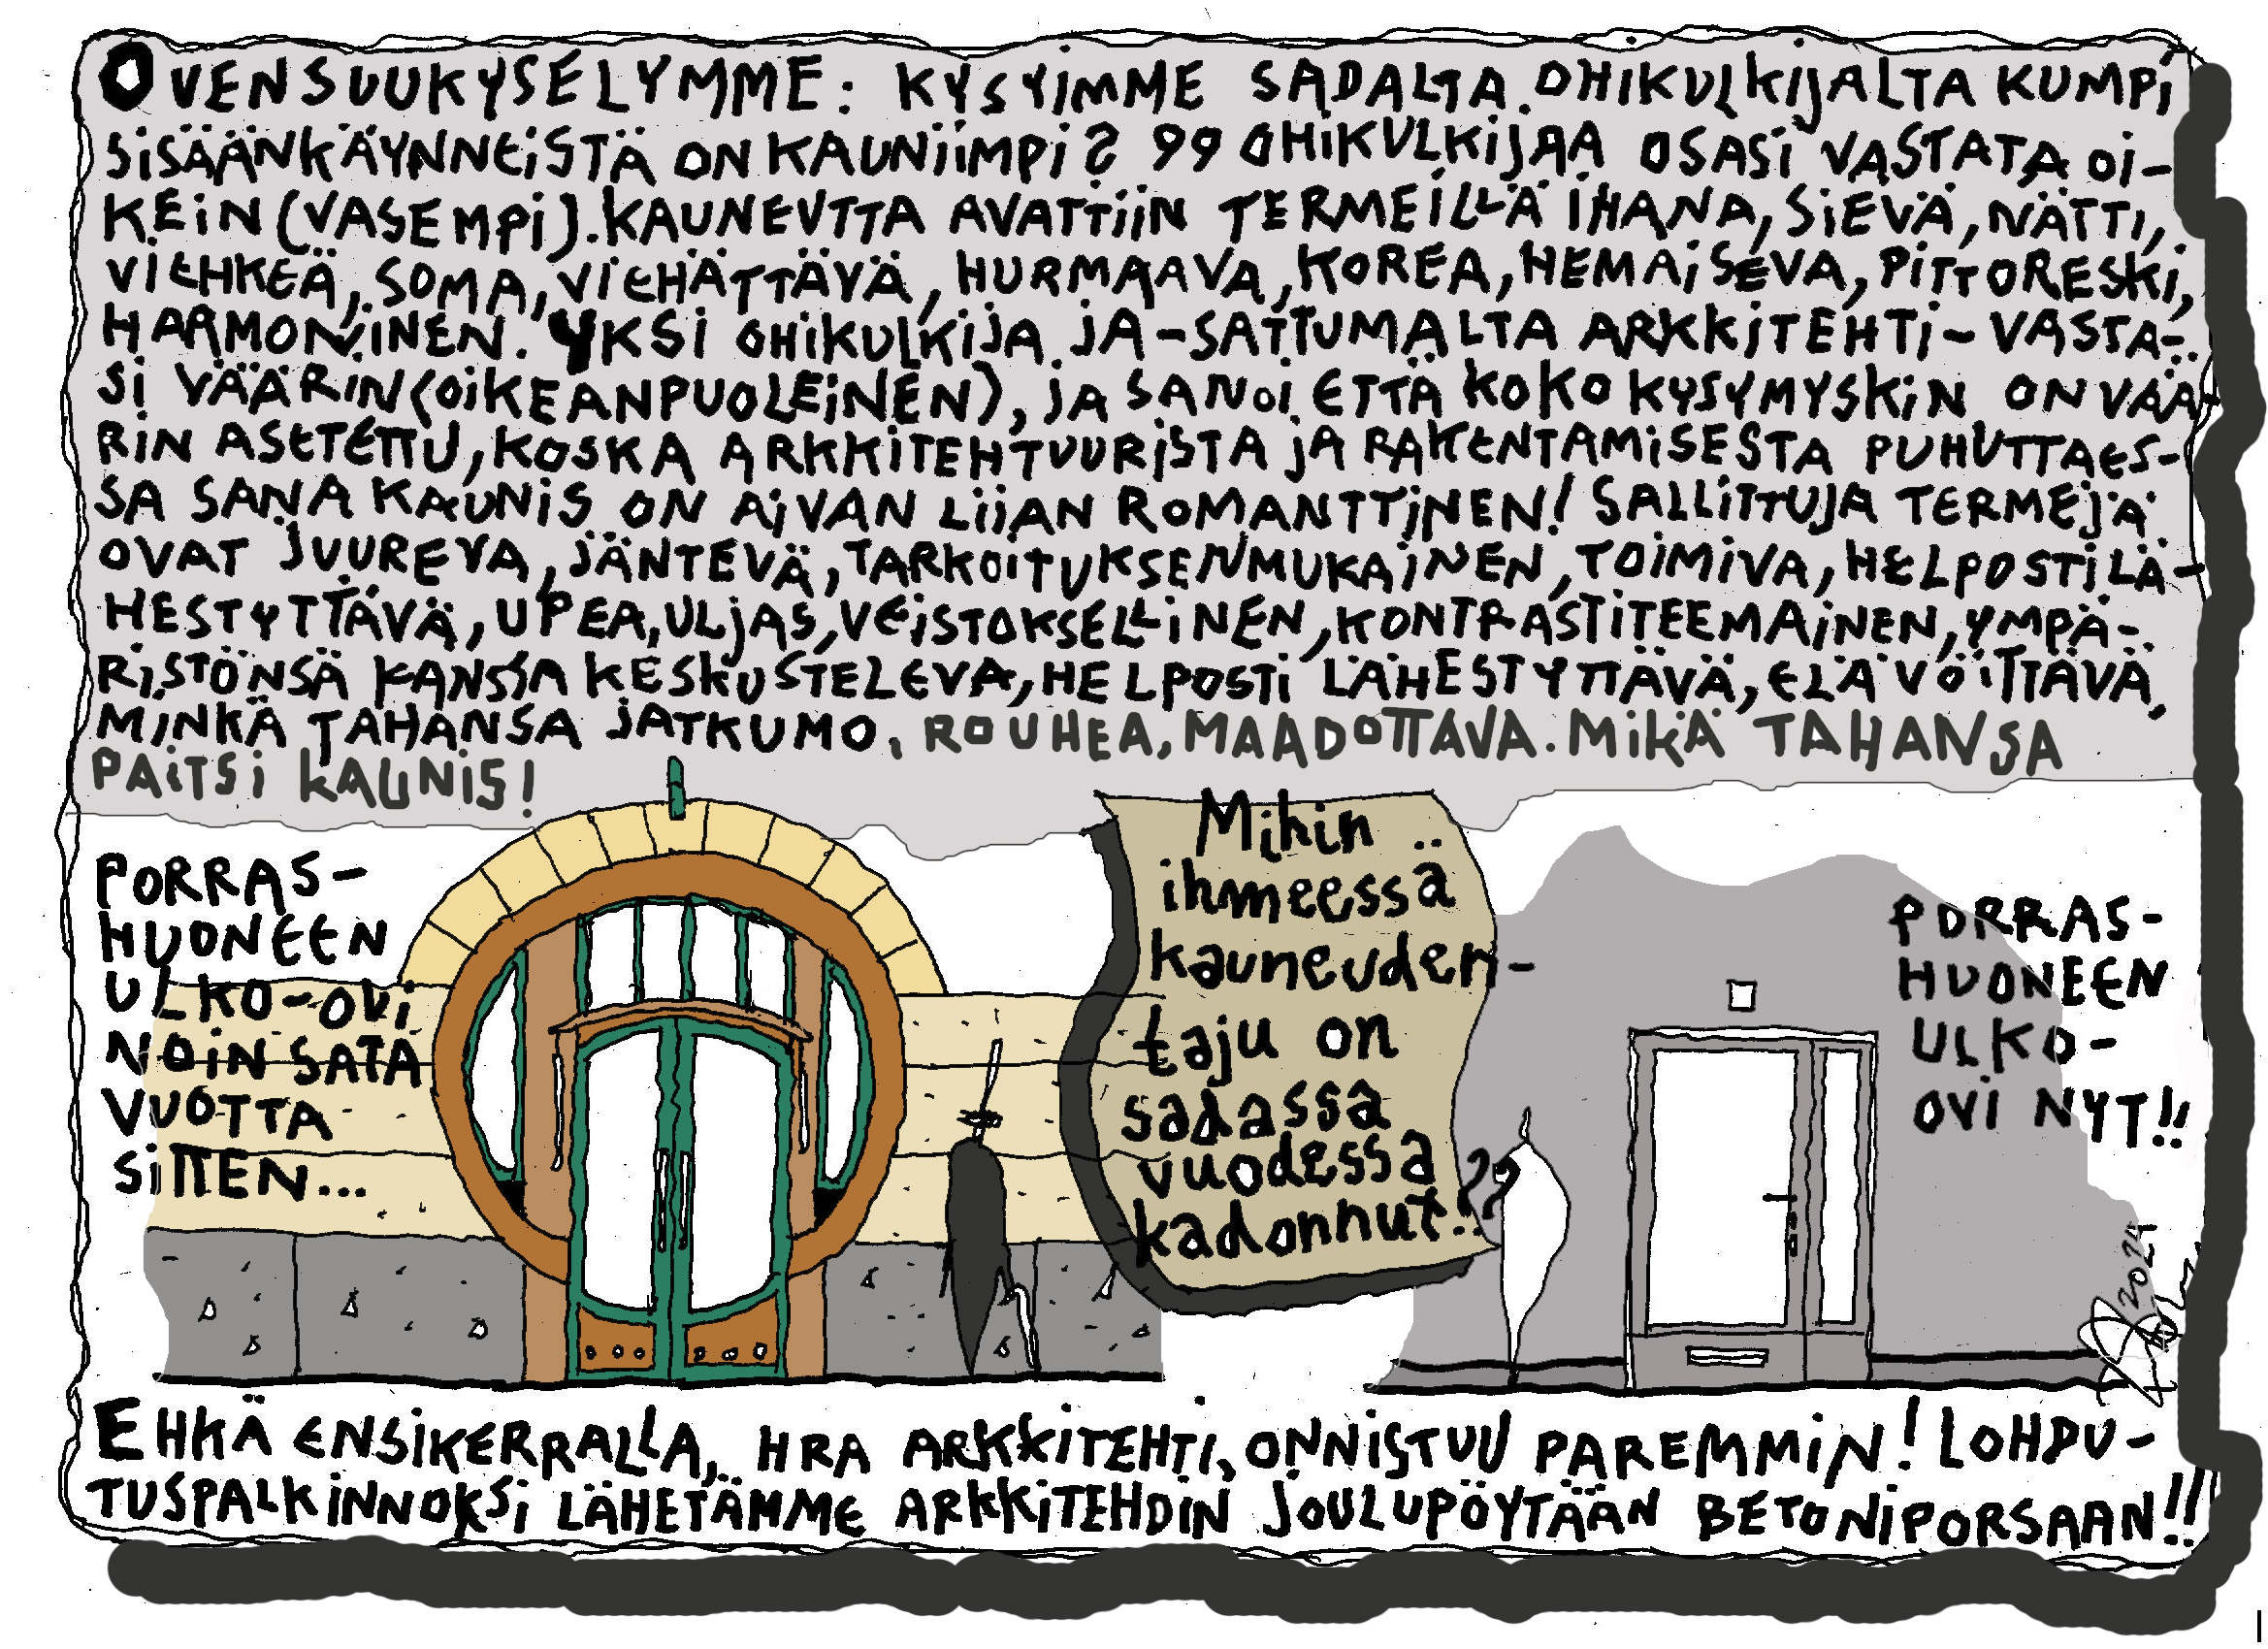 OVENSUUKYSELYMME: KYSYIMME SADALTA OHIKULKIJALTA KUMPI
SISÄÄNKÄYNNEISTÄ ON KAUNIIMPI? 99 OHIKULKIJAA OSASI VASTATA OI-
KEIN (VASEMPI). KAUNEUTTA AVATTIIN TERMEILLÄ IHANA, SIEVÄ, NÄTTI,
VIEHKEÄ, SOMA, VIEHÄTTÄVÄ, HURMAAVA, KOREA, HEMAISEVA, PITTORESKI,
HARMONINEN. YKSI OHIKULKIJA JA-SATTUMALTA ARKKITEHTI-VASTA-
SI VÄÄRIN (OIKEANPUOLEINEN), JA SANOI ETTÄ KOKO KYSYMYSKIN ON VÄÄ-
RIN ASETETTU, KOSKA ARKKITEHTUURISTA JA RAKENTAMISESTA PUHUTTAES-
SA SANA KAUNIS ON AIVAN LIIAN ROMANTTINEN! SALLITTUJA TERMEJÄ
OVAT JUUREVA, JÄNTEVÄ, TARKOITUKSENMUKAINEN, TOIMIVA, HELPOSTI LÄ-
HESTYTTÄVÄ, UPEA, ULJAS, VEISTOKSELLINEN, KONTRASTITEEMAINEN, YMPÄ-
RISTÖNSÄ KANSSA KESKUSTELEVA, HELPOSTI LÄHESTYTTÄVÄ, ELÄVÖITTÄVÄ,
MINKÄ TAHANSA JATKUMO, ROUHEA, MAADOTTAVA. MIKÄ TAHANSA
PAITSI KAUNIS!
PORRAS-
HUONEEN
ULKO-OVI
NOIN SATA
VUOTTA
SITTEN...
Mihin
ihmeessä
kauneuden-
taju on
sadassa
vuodessa
kadonnut!??
PORRAS-
HUONEEN
ULKO-
OVI NYT!!
2024
EHKÄ ENSIKERRALLA, HRA ARKKITEHTI, ONNISTUU PAREMMIN! LOHDU-
TUSPALKINNOKSI LÄHETÄMME ARKKITEHDIN JOULUPÖYTÄÄN BETONIPORSAAN!!